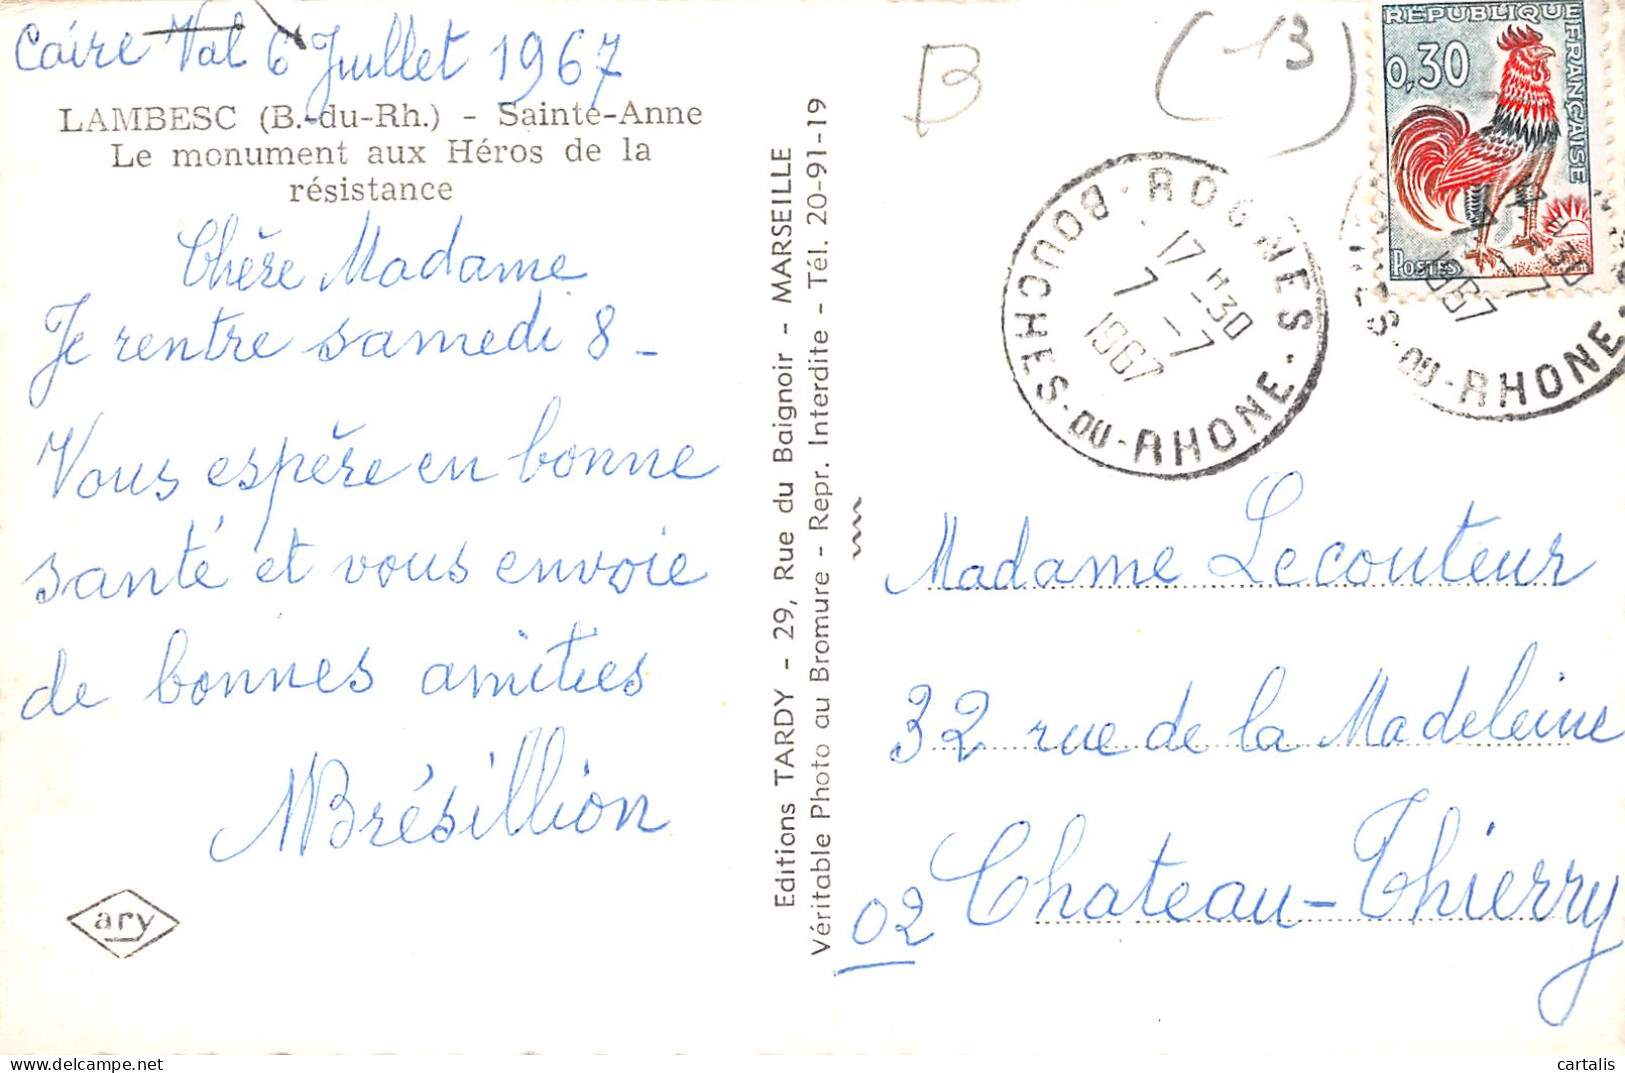 Caire Val 6 Juillet 1967
LAMBESC (B.-du-Rh.) - Sainte-Anne
Le monument aux Héros de la
résistance
Chère Madame
Je rentre samedi 8 -
Vous espère en bonne
santé et vous envoie
de bonnes amitiés
MBrésillion
ary
Editions TARDY - 29, Rue du Baignoir - MARSEILLE
Véritable Photo au Bromure - Repr. Interdite - Tél. 20-91-19
B
(-13)
REPUBLIQUE FRANÇAISE
0,30
POSTES
ROGNES - BOUCHES-DU-RHONE -
17 H 30
7 - 7
1967
17 H 30
7 - 7
1967
ES-DU-RHONE -
Madame Lecouteur
32 rue de la Madeleine
02 Chateau-Thierry
cartalis